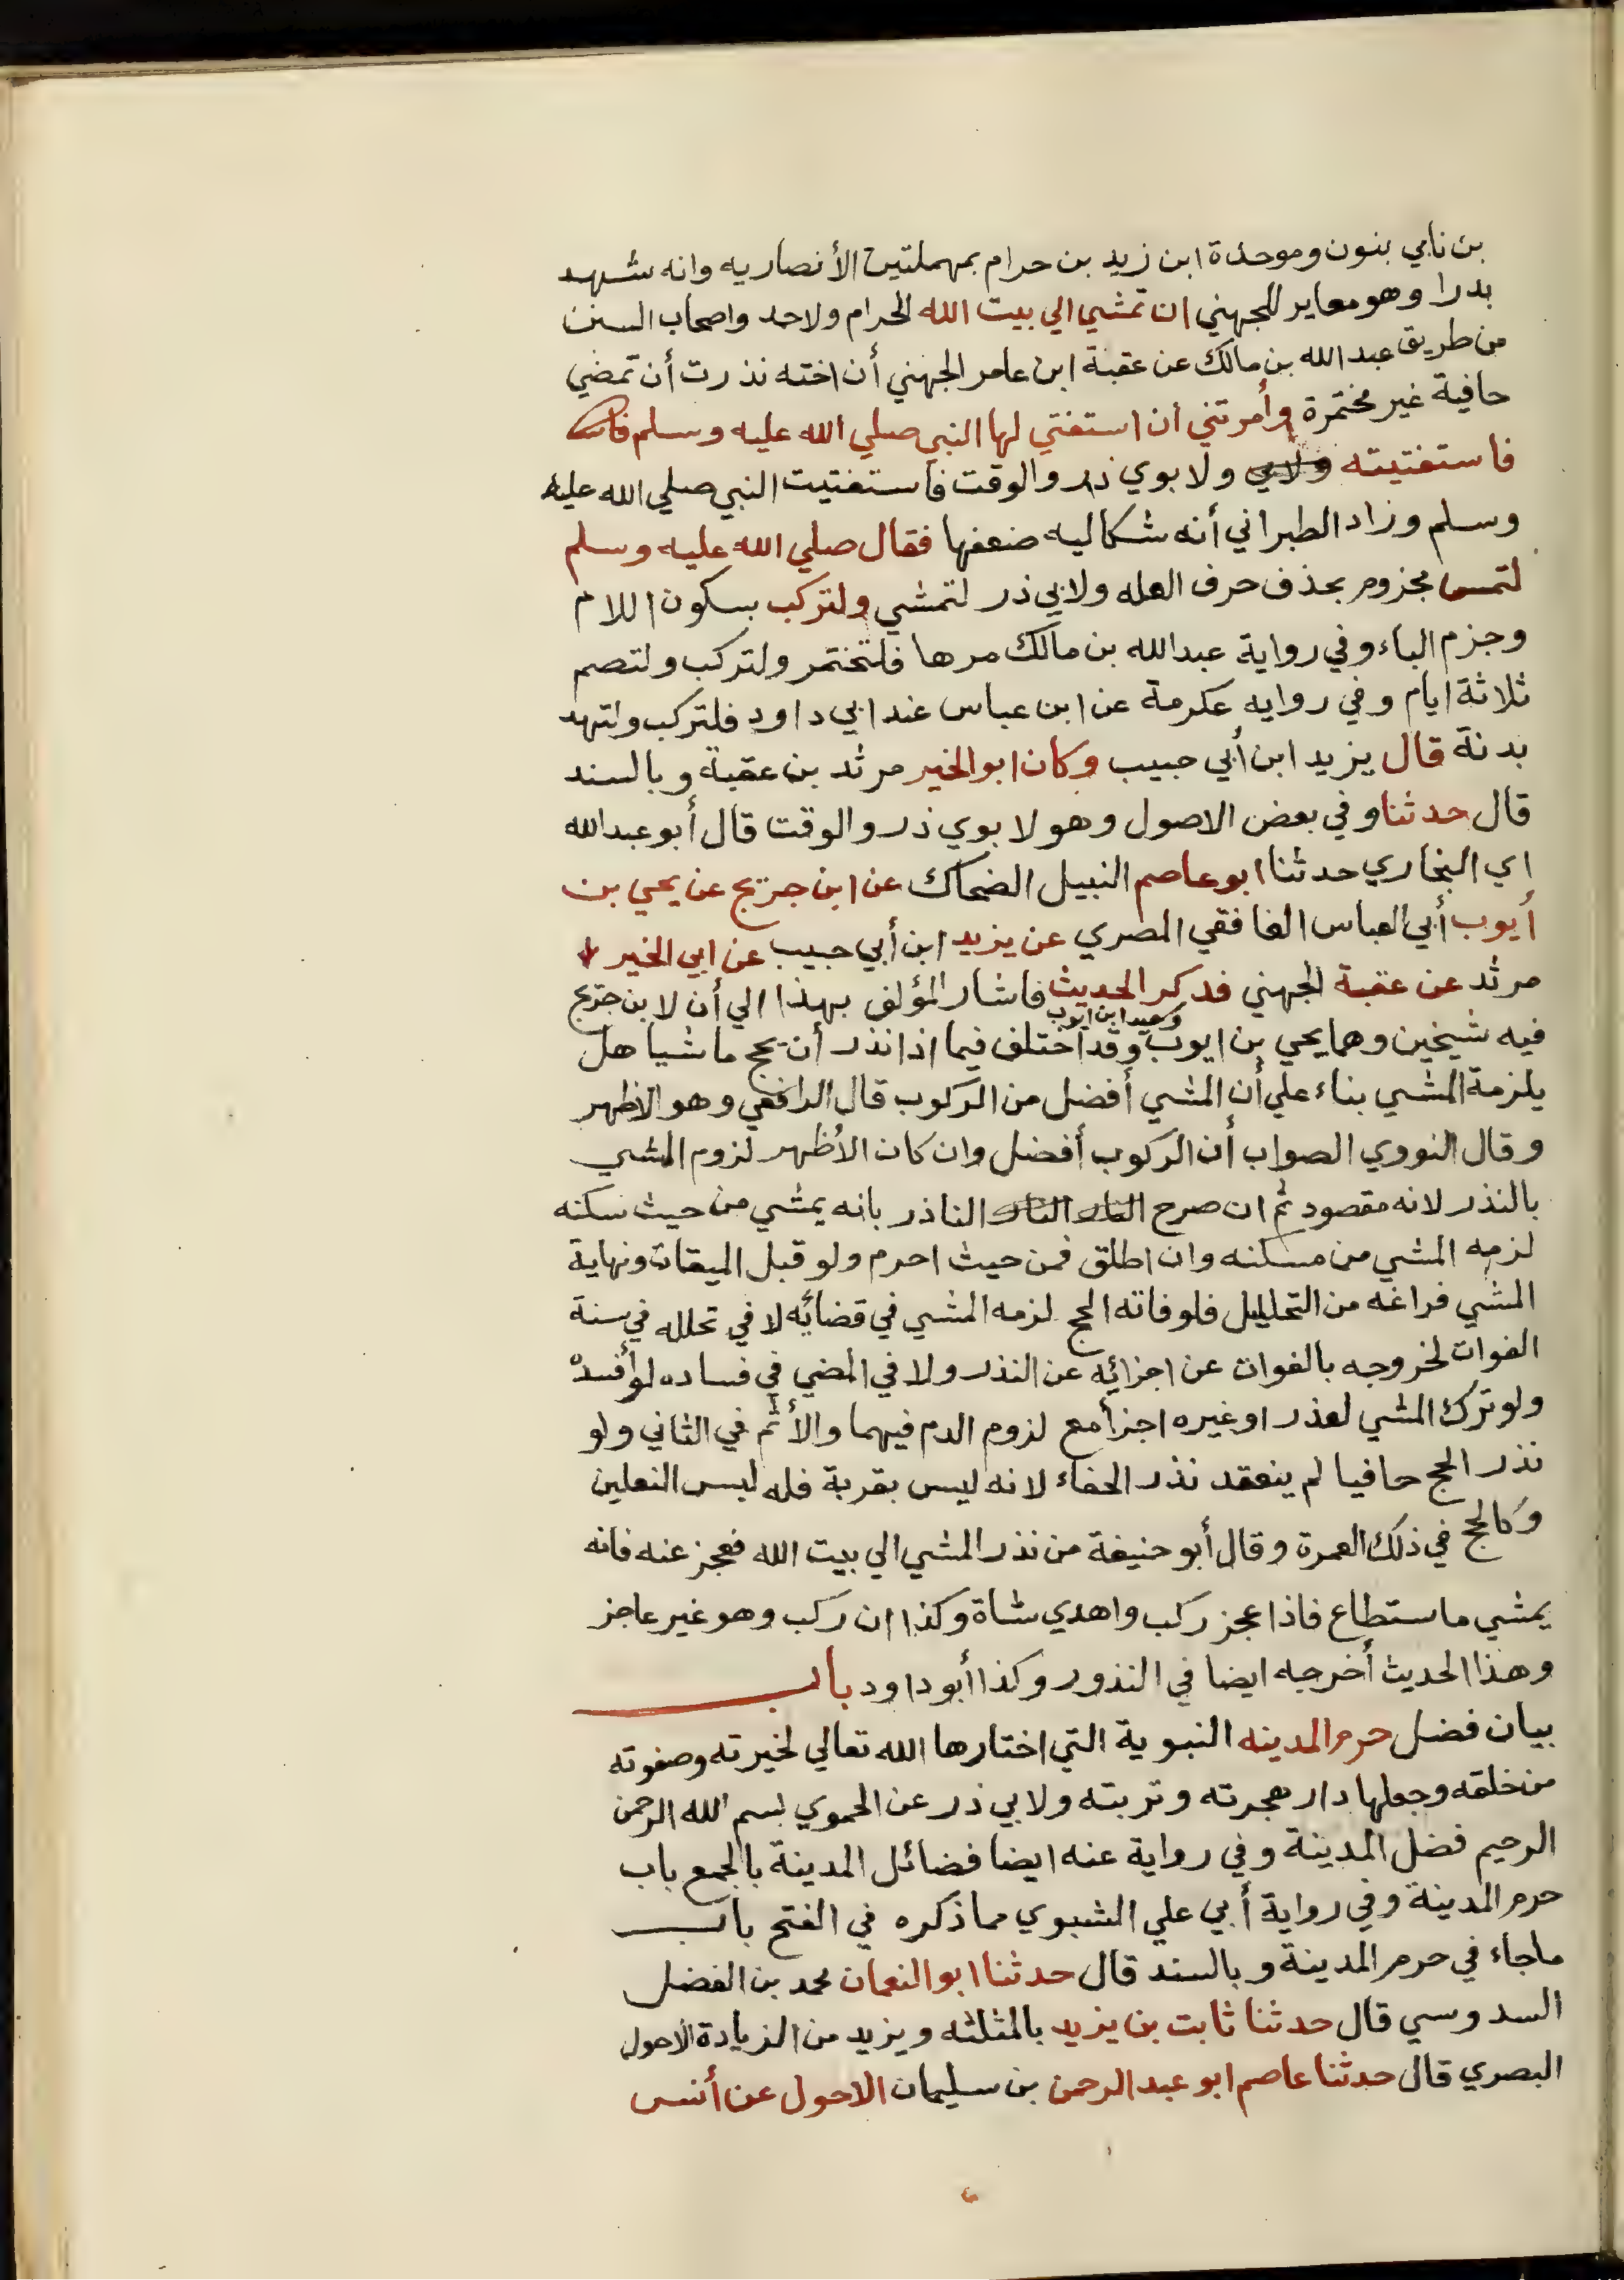 بن نابي بنون وموحدة ابن زيد بن حرام بمهملتين الأنصاريه وانه شهد
بدرا وهو معاير للجهني ان تمشي الي بيت الله الحرام ولاحد واصحاب السنن
من طريق عبد الله بن مالك عن عقبة ابن عامر الجهني أن اخته نذرت أن تمضي
حافية غير مختمرة وأمرتني ان استفتي لها النبي صلي الله عليه وسلم
فاستفتيته ولابوي ذر والوقت فاستفتيت النبي صلي الله عليه
وسلم وزاد الطبراني أنه شكا اليه ضعفها فقال صلي الله عليه وسلم
لتمس مجزوم بحذف حرف العله ولابي ذر لتمشي ولتركب بسكون اللام
وجزم الباء وفي رواية عبد الله بن مالك مرها فلتختمر ولتركب ولتصم
ثلاثة ايام وفي روايه عكرمة عن ابن عباس عند ابي داود فلتركب ولتهد
بدنة قال يزيد ابن أبي حبيب وكان ابو الخير مرثد بن عقبة وبالسند
قال حدثنا وفي بعض الاصول وهو لابوي ذر والوقت قال أبو عبد الله
اي البخاري حدثنا ابو عاصم النبيل الضحاك عن ابن جريج عن يحي بن
أيوب أبي العباس الغافقي المصري عن يزيد ابن أبي حبيب عن ابي الخير
مرثد عن عقبة الجهني فدكر الحديث فاشار المؤلف بهذا الي أن لابن جريج
وسعيد ابن ايوب
فيه شيخين وهما يحي بن ايوب وقد احتلف فيما اذا نذر أن يحج ماشيا هل
يلزمة المشي بناء علي أن المشي أفضل من الركوب قال الرافعي وهو الاظهر
وقال النووي الصواب أن الركوب أفضل وان كان الأظهر لزوم المشي
بالنذر لانه مقصود ثم ان صرح الناذر بانه يمشي من حيث سكنه
لزمه المشي من مسكنه وان اطلق فمن حيث احرم ولو قبل الميقات ونهاية
المشي فراغه من التحليل فلو فاته الحج لزمه المشي في قضائه لا في تحلله في سنة
الفوات لخروجه بالفوات عن اجزائه عن النذر ولا في المضي في فساده لو أفسده
ولو ترك المشي لعذر او غيره اجزأ مع لزوم الدم فيهما والأثم في الثاني ولو
نذر الحج حافيا لم ينعقد نذر الحفاء لانه ليس بقربة فله لبس النعلين
وكالحج في ذلك العمرة وقال أبو حنيفة من نذر المشي الي بيت الله فعجز عنه فانه
يمشي ما ستطاع فاذا عجز ركب واهدي شاة وكذا ان ركب وهو غير عاجز
وهذا الحديث أخرجه ايضا في النذور وكذا أبو داود باب
بيان فضل حرم المدينه النبوية التي اختارها الله تعالي لخيرته وصفوته
من خلقه وجعلها دار هجرته وتربته ولابي ذر عن الحموي بسم الله الرحمن
الرحيم فضل المدينة وفي رواية عنه ايضا فضائل المدينة بالجمع باب
حرم المدينة وفي رواية أبي علي الشبوي مما ذكره في الفتح باب
ماجاء في حرم المدينة وبالسند قال حدثنا ابو النعمان محمد بن الفضل
السدوسي قال حدثنا ثابت بن يزيد بالمثلثه ويزيد من الزيادة الاحول
البصري قال حدثنا عاصم ابو عبد الرحمن بن سليمان الاحول عن أنس